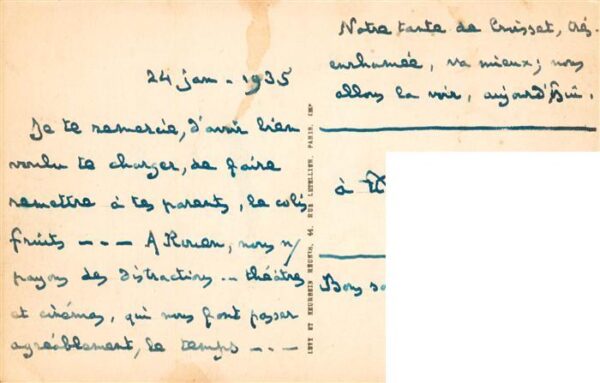 24 jan - 1935
Je te remercie, d'avoir bien
voulu te charger, de faire
remettre à tes parents, le colis
fruits - - - A Rouen, nous n/
payons des distractions -- théâtres
et cinémas, qui nous font passer
agréablement, le temps - - -
LEVY ET NEURDEIN RÉUNIS, 44, RUE LETELLIER, PARIS, IMP
Notre tante de Cruisset, trés-
enrhumée, va mieux; nous
allons la voir, aujourd'hui.
à
Bons